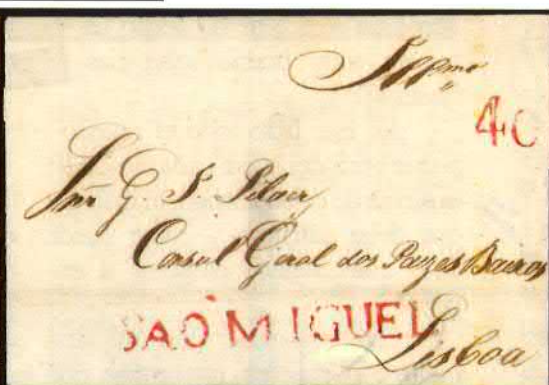 Illmo
40
Snr G S
Consul Geral dos Paizes Baixos
SAO MIGUEL
Lisboa